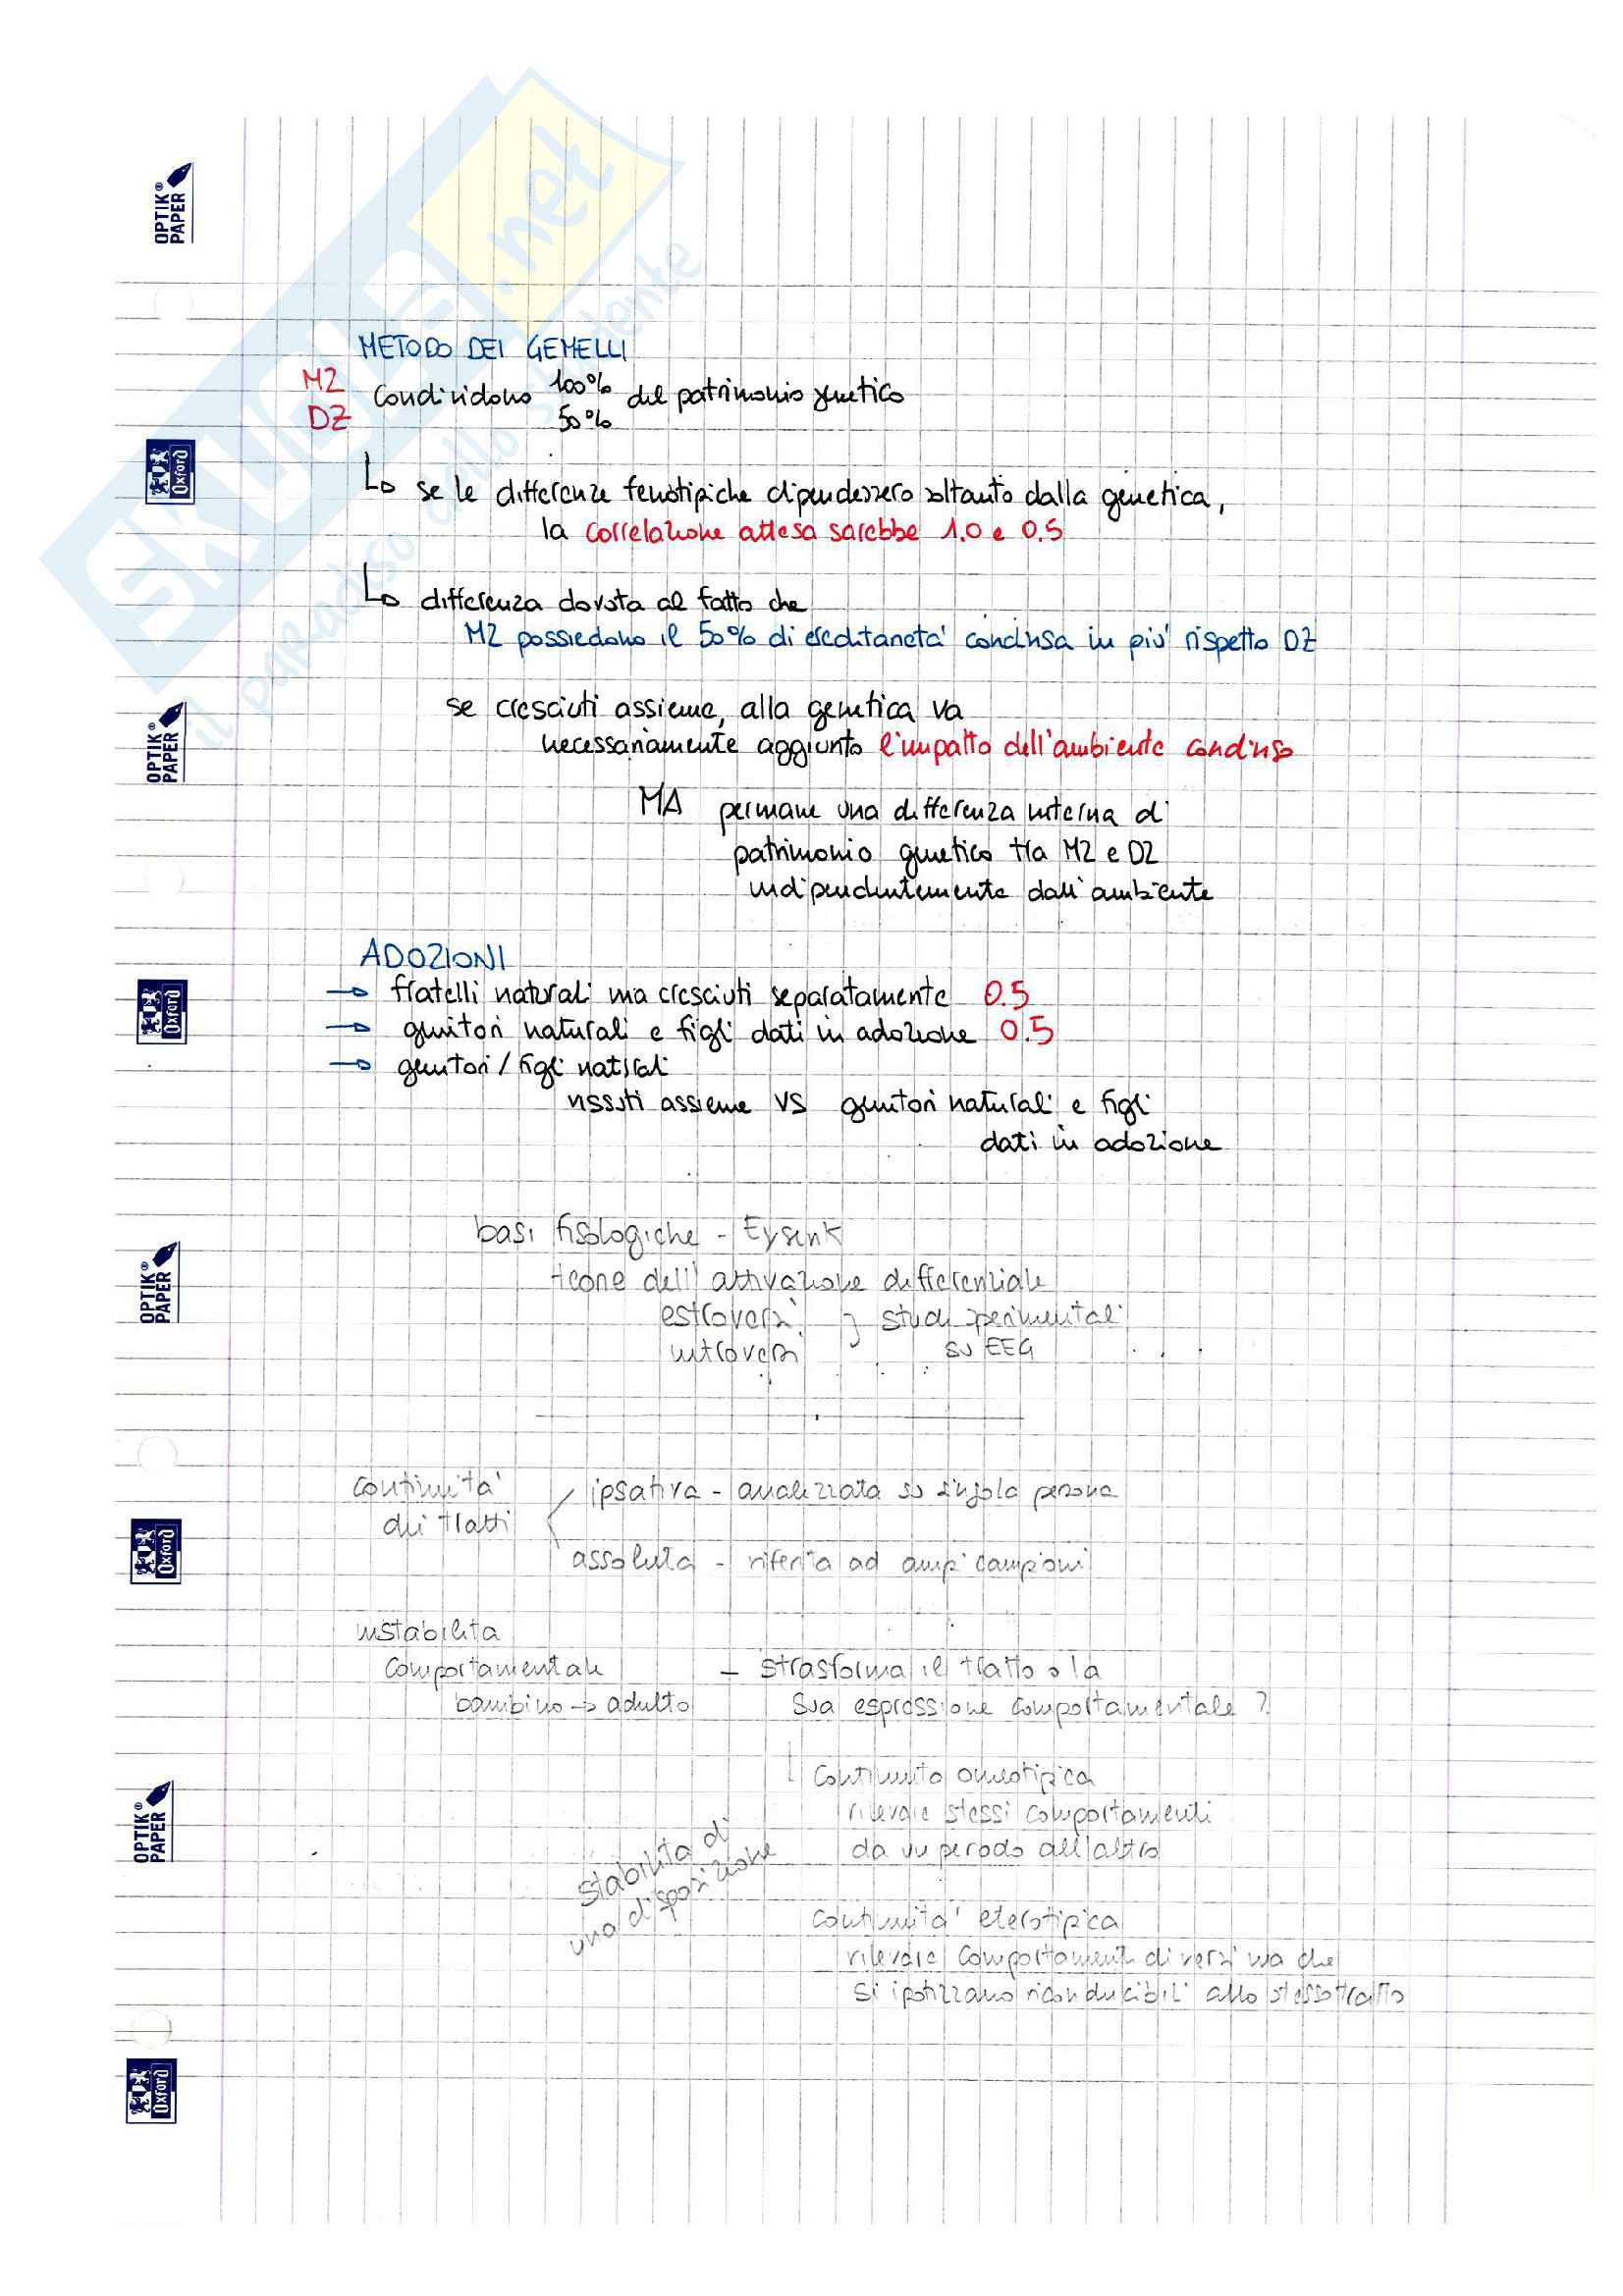 SKUOLA.net
il paradiso dello studente
OPTIK®
PAPER
Oxford
OPTIK®
PAPER
Oxford
OPTIK®
PAPER
Oxford
OPTIK®
PAPER
Oxford
METODO DEI GEMELLI
MZ
DZ
condividono 100% del patrimonio genetico
50%
se le differenze fenotipiche dipendessero soltanto dalla genetica,
la correlazione attesa sarebbe 1.0 e 0.5
differenza dovuta al fatto che
MZ possiedono il 50% di ereditarietà condivisa in più rispetto DZ
se cresciuti assieme, alla genetica va
necessariamente aggiunto l'impatto dell'ambiente condiviso
MA permane una differenza interna di
patrimonio genetico tra MZ e DZ
indipendentemente dall'ambiente
ADOZIONI
→ fratelli naturali ma cresciuti separatamente 0.5
→ genitori naturali e figli dati in adozione 0.5
→ genitori / figli naturali
vissuti assieme VS genitori naturali e figli
dati in adozione
basi fisiologiche - Eysenk
teorie dell'attivazione differenziale
estroversi } studi sperimentali
introversi su EEG
continuità ipsativa - analizzata su singola persona
dei tratti
assoluta - riferita ad ampi campioni
instabilità
comportamentale - si trasforma il tratto o la
bambino → adulto sua espressione comportamentale ?
continuità omeotipica
rilevare stessi comportamenti
da un periodo all'altro
stabilità di
una disposizione
continuità eterotipica
rilevare comportamenti diversi ma che
si ipotizzano riconducibili allo stesso tratto